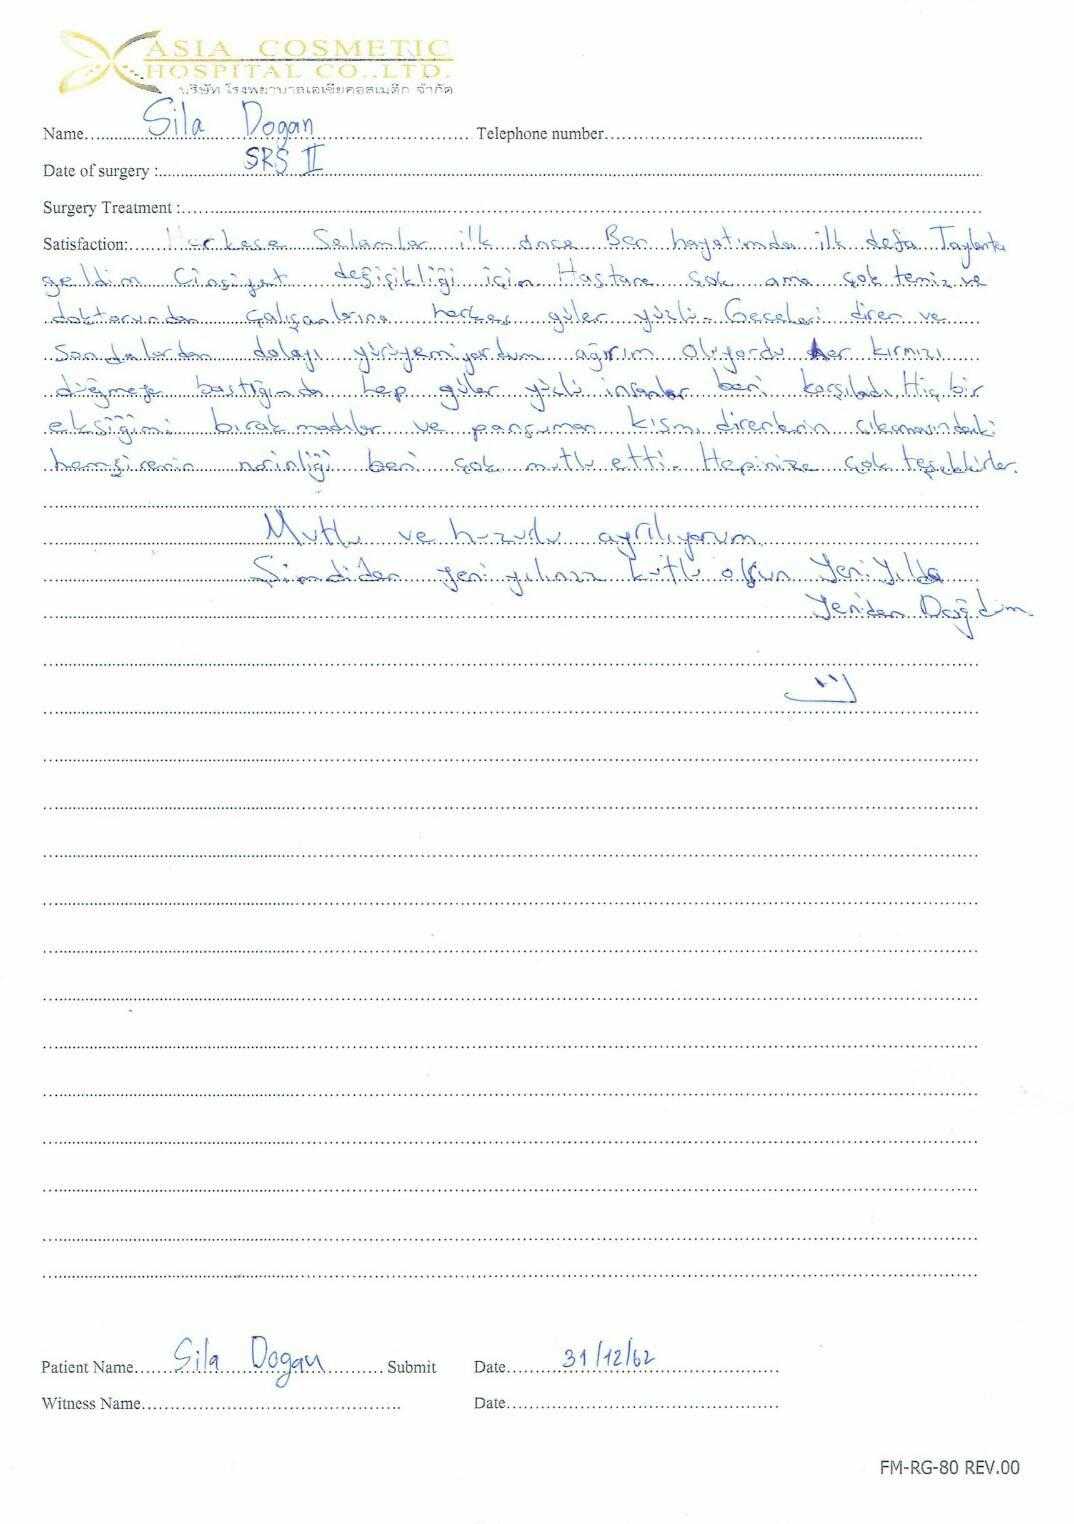 ASIA COSMETIC
HOSPITAL CO.,LTD.
บริษัท โรงพยาบาลเอเซียคอสเมติก จำกัด
Name Sila Dogan Telephone number
Date of surgery : SRS II
Surgery Treatment :
Satisfaction: Herkese Selamlar ilk önce Ben hayatımda ilk defa Taylanta
geldim Cinsiyet değişikliği için Hastane çok ama çok temiz ve
doktorundan çalışanlarına herkes güler yüzlü. Geceleri diren ve
Sondalardan dolayı yürüyemiyordum ağrım oluyordu her kırmızı
düğmeye bastığımda hep güler yüzlü insanlar beni karşıladı Hiç bir
eksiğimi bırakmadılar ve pansuman kısmı direnlerin çıkarmasındaki
hemşirenin narinliği beni çok mutlu etti. Hepinize çok teşekkürler.
Mutlu ve huzurlu ayrılıyorum
Şimdiden yeni yılınız kutlu olsun Yeni Yılda
Yeniden Doğdum.
Patient Name Sila Dogan Submit Date 31/12/62
Witness Name Date
FM-RG-80 REV.00